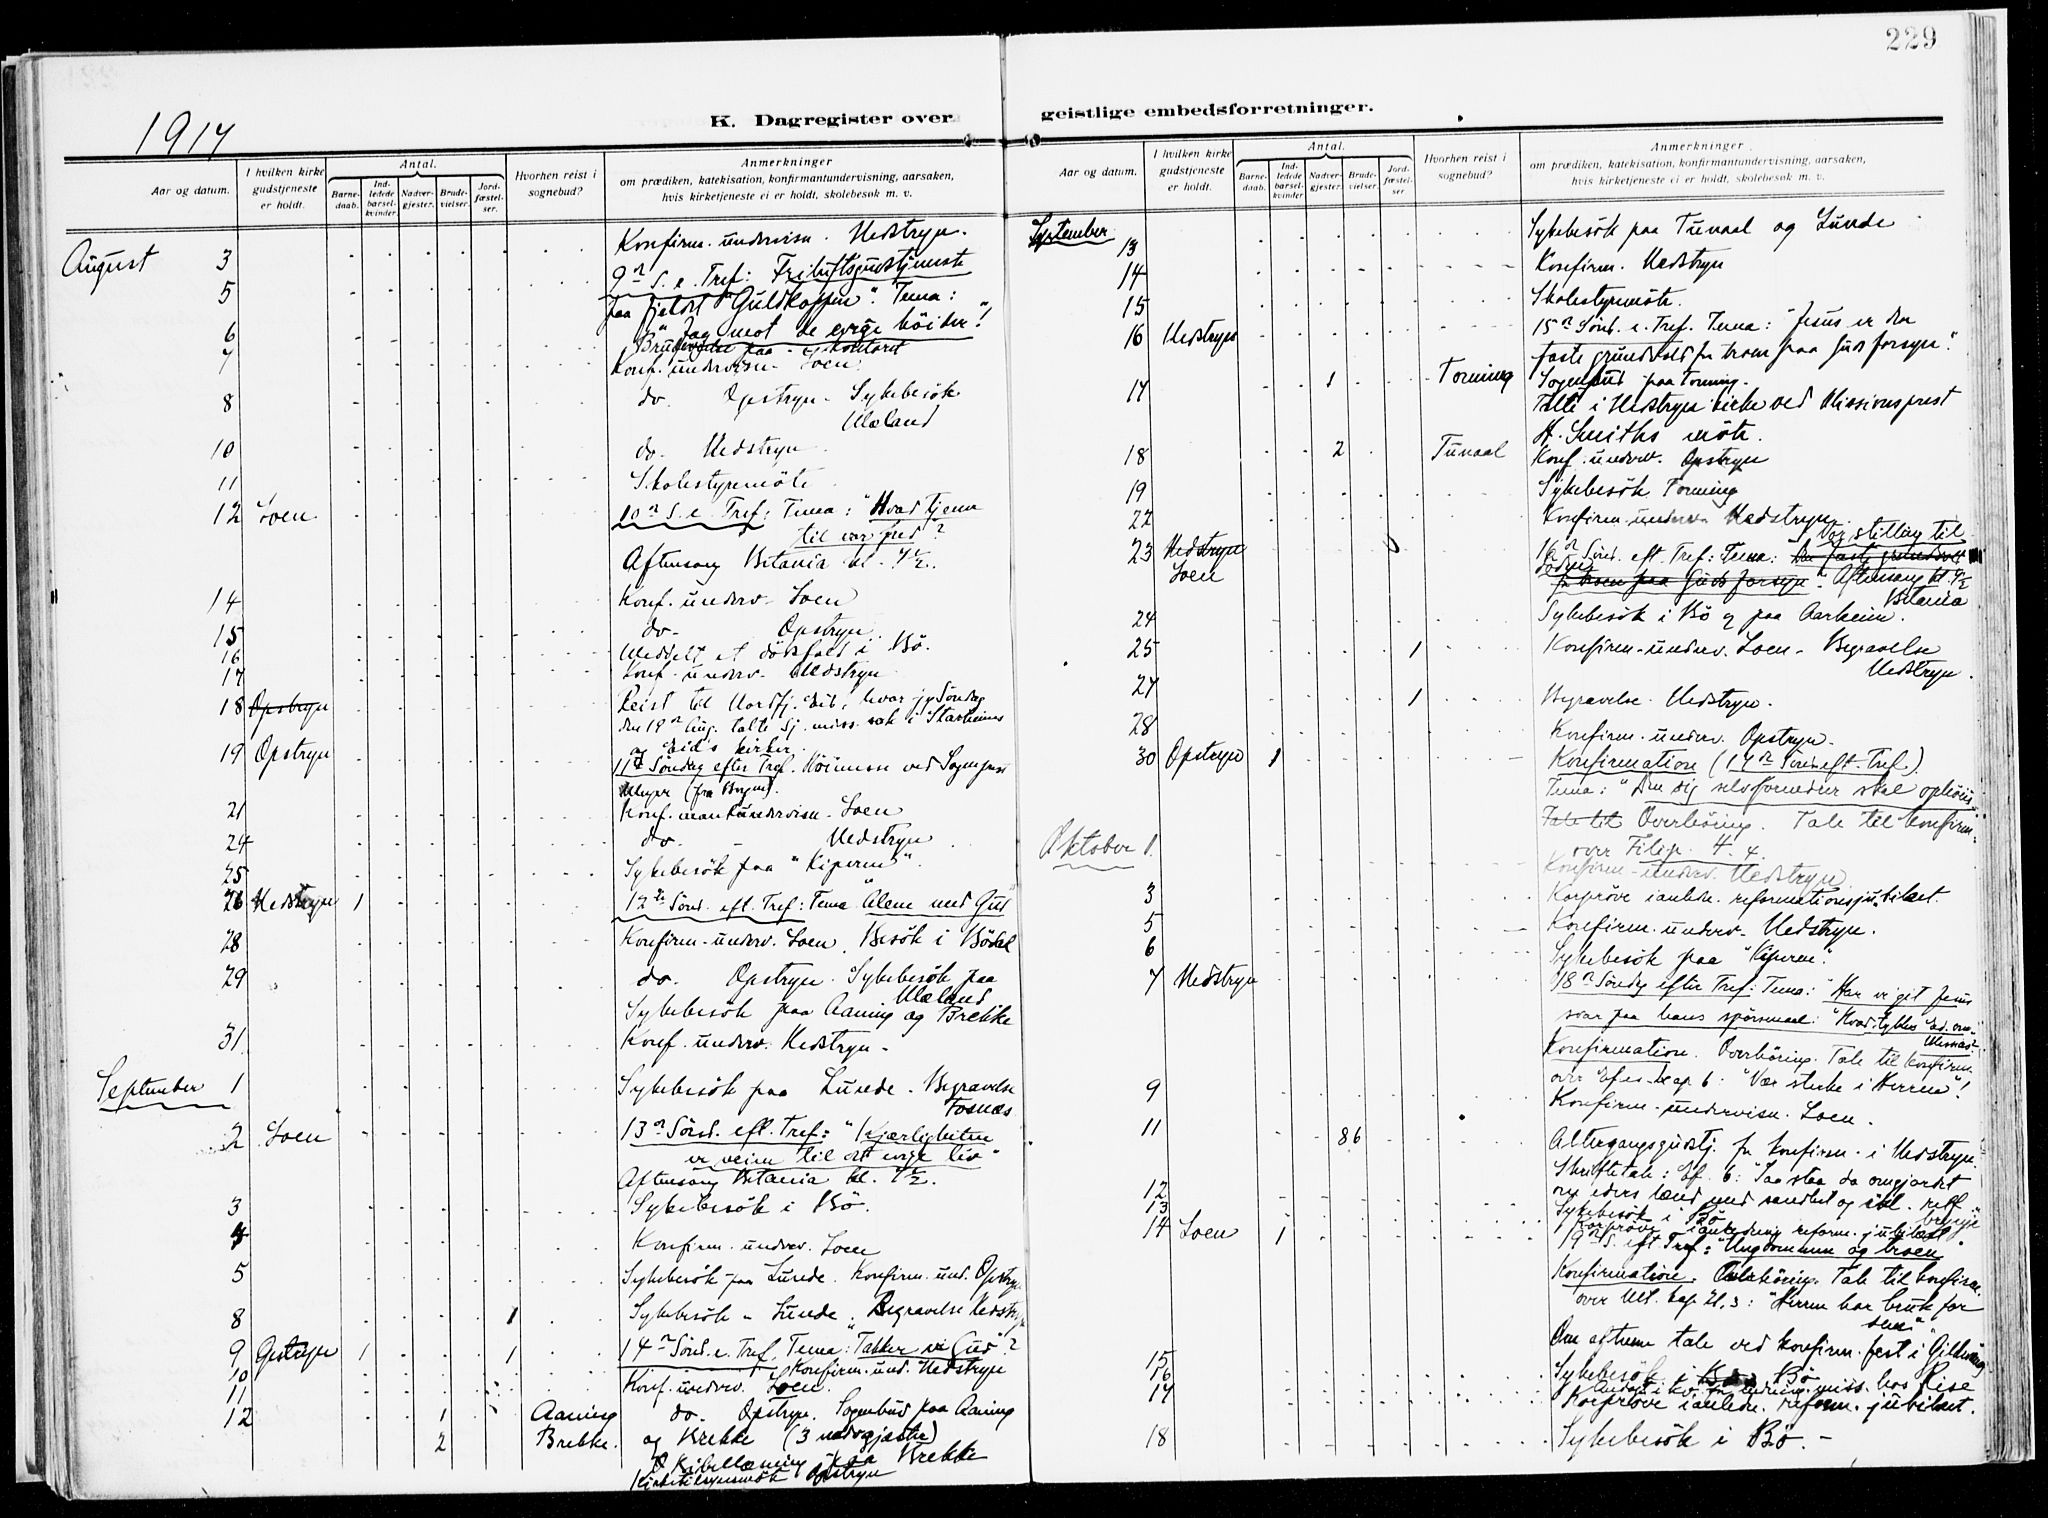 229
1917
K. Dagregister over geistlige embedsforretninger.
Aar og datum.
I hvilken kirke gudstjeneste er holdt.
Antal.
Barnedaab.
Indledede barselkvinder.
Nadvergjester.
Brudevielser.
Jordfæstelser.
Hvorhen reist i sognebud?
Anmerkninger
om prædiken, katekisation, konfirmantundervisning, aarsaken,
hvis kirketjeneste ei er holdt, skolebesøk m. v.
August 3 Konfirm. undervisn. Nedstryn.
5 9n S. e. Tref: Friluftsgudstjeneste
paa fjeldet "Guldkoppen". Tema:
"Dag mot de evige höider"!
6 Brudevielse paa kontoret
7 Konf. undervisn. Loen.
8 do. Opstryn. Sykebesök
Mæland
10 do. Nedstryn.
11 Skolestyremöte
12 Loen 10n S. e. Tref: Tema: "Hvad tjener
til vor fred"?
Aftensang Betania kl. 4½.
14 Konf. underv. Loen
15 do. Opstryn.
16 Meddelt et dödsfald i Bö.
17 Konf. underv. Nedstryn
18 Opstryn Reist til Nordfj. Eid, hvor jeg Söndag
den 19n Aug. talte Sj. miss. sak i Starheims
og Eid's kirker.
19 Opstryn 11te Söndag efter Tref. Höimesse ved Sognepr.
Meyer (fra Bergen).
21 Konf. undervisn. Loen
24 do. - Nedstryn
25 Sykebesök paa "Kiperen".
26 Nedstryn 1 12te Sönd. eft. Tref: Tema "Alene med Gud"
28 Konfirm. underv. Loen. Besök i Bödal
29 do. Opstryn. Sykebesök paa
Mæland
Sykebesök paa Aaning og Brekke
31. Konf. underv. Nedstryn.
September 1 Sykebesök paa Lunde. Begravelse
Fosnæs
2 Loen 13n Sönd. eft. Tref: "Kjærligheten
er veien til det evige liv"
Aftensang Betania kl. 4½.
3 Sykebesök i Bö.
4 Konfirm. underv. Loen
5 Sykebesök paa Lunde. Konfirm. und. Opstryn
8 1 Sykebesök - Lunde. Begravelse Nedstryn
9 Opstryn 1 1 14n Sönd. e. Tref. Tema: "Takker vi Gud"?
10 Konfirm. und. Nedstryn
11 Konf. underv. Loen.
12 1 Aaning do. Opstryn. Sognebud paa Aaning
2 Brekke. og Brekke (3 nadvgjæster)
Bibellæsning paa Brekke
Kirketilsynsmöte Opstryn
Aar og datum.
I hvilken kirke gudstjeneste er holdt.
Antal.
Barnedaab.
Indledede barselkvinder.
Nadvergjester.
Brudevielser.
Jordfæstelser.
Hvorhen reist i sognebud?
Anmerkninger
om prædiken, katekisation, konfirmantundervisning, aarsaken,
hvis kirketjeneste ei er holdt, skolebesøk m. v.
September 13 Sykebesök paa Tunaal og Lunde
14 Konfirm. Nedstryn
15 Skolestyremöte.
16 Nedstryn 15n Sönd. e. Tref. Tema: "Jesus er den
faste grundvold for troen paa Guds forsyn".
17 1 Tonning Sognebud paa Tonning.
Talte i Nedstryn kirke ved Missionsprest
A. Smiths möte.
18 2 Tunaal Konf. underv. Opstryn
19 Sykebesök Tonning
22 Konfirm. underv. Nedstryn.
23 Nedstryn
Loen
16n Sönd. eft. Tref: Tema: Den faste grundvold "Vor stilling til
döden" for troen paa Guds forsyn". Aftensang kl. 4½
Betania
24 Sykebesök i Bö og paa Aarheim.
25 1 Konfirm. underv. Loen - Begravelse
Nedstryn.
27 1 Begravelse. Nedstryn.
28 Konfirm. underv. Opstryn.
30 Opstryn 1 Konfirmation (17n Sönd. eft. Tref.)
Tema: "Den sig selv fornedrer skal ophöies".
Tale til Overhöring. Tale til konfirm.
over Filip. 4. 4.
Oktober 1. Konfirm. underv. Nedstryn
3 Korpröve i anledn. reformationsjubilæet.
5 Konfirm. underv. Nedstryn.
6 Sykebesök paa "Kiperen".
7 Nedstryn 18n Söndag efter Tref: Tema: "Har vi git Jesus
svar paa hans spörsmaal: "Hvad tykkes Ed. om
Messias"
Konfirmation. Overhöring. Tale til konfirm.
over Efes. kap 6: "Vær sterke i Herren"!
9 Konfirm. undervisn. Loen.
11 86 Altergangsgudstj. for konfirm. i Nedstryn.
Skriftetale: Ef. 6: "Saa staa da omgjordet
om eders lænd med sandhet og
12 Sykebesök i Bö
13 Korpröve i anledning reform. jubilæet
14 Loen 1 19n S. eft. Tref: "Ungdommen og troen".
Konfirmation. Overhöring. Tale til konfirm.
over Mt. kap 21, 3: "Herren har bruk for
dem".
Om aftenen tale ved konfirm. fest i
15 Sykebesök i Bö
16
17 Korpröve i anledn. reform. jubilæet.
18 Sykebesök i Bö. -